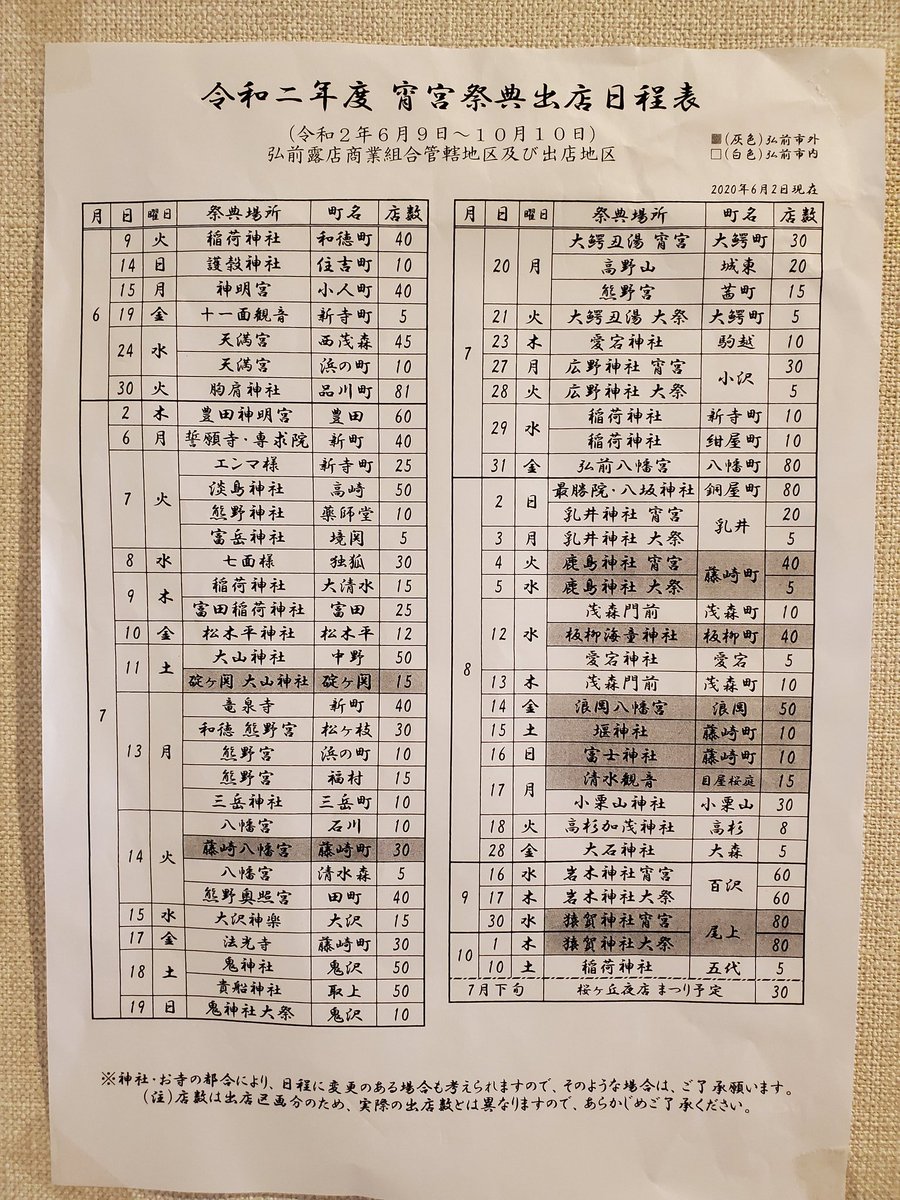 令和二年度 宵宮祭典出店日程表
(令和2年6月9日~10月10日)
弘前露店商業組合管轄地区及び出店地区
■(灰色)弘前市外
□(白色)弘前市内
2020年6月2日現在
月 日 曜日 祭典場所 町名 店数
6 9 火 稲荷神社 和徳町 40
14 日 護穀神社 住吉町 10
15 月 神明宮 小人町 40
19 金 十一面観音 新寺町 5
24 水 天満宮 西茂森 45
天満宮 浜の町 10
30 火 胸肩神社 品川町 81
7 2 木 豊田神明宮 豊田 60
6 月 誓願寺・専求院 新町 40
7 火 エンマ様 新寺町 25
淡島神社 高崎 50
熊野神社 薬師堂 10
富岳神社 境関 5
8 水 七面様 独狐 30
9 木 稲荷神社 大清水 15
富田稲荷神社 富田 25
10 金 松木平神社 松木平 12
11 土 大山神社 中野 50
碇ヶ関 大山神社 碇ヶ関 15
13 月 竜泉寺 新町 40
和徳 熊野宮 松ヶ枝 30
熊野宮 浜の町 10
熊野宮 福村 15
三岳神社 三岳町 10
14 火 八幡宮 石川 10
藤崎八幡宮 藤崎町 30
八幡宮 清水森 5
熊野奥照宮 田町 40
15 水 大沢神楽 大沢 15
17 金 法光寺 藤崎町 30
18 土 鬼神社 鬼沢 50
貴船神社 取上 50
19 日 鬼神社大祭 鬼沢 10
月 日 曜日 祭典場所 町名 店数
7 20 月 大鰐丑湯 宵宮 大鰐町 30
高野山 城東 20
熊野宮 茜町 15
21 火 大鰐丑湯 大祭 大鰐町 5
23 木 愛宕神社 駒越 10
27 月 広野神社 宵宮 小沢 30
28 火 広野神社 大祭 5
29 水 稲荷神社 新寺町 10
稲荷神社 紺屋町 10
31 金 弘前八幡宮 八幡町 80
8 2 日 最勝院・八坂神社 銅屋町 80
乳井神社 宵宮 乳井 20
3 月 乳井神社 大祭 5
4 火 鹿島神社 宵宮 藤崎町 40
5 水 鹿島神社 大祭 5
12 水 茂森門前 茂森町 10
板柳海童神社 板柳町 40
愛宕神社 愛宕 5
13 木 茂森門前 茂森町 10
14 金 浪岡八幡宮 浪岡 50
15 土 堰神社 藤崎町 10
16 日 富士神社 藤崎町 10
17 月 清水観音 目屋桜庭 15
小栗山神社 小栗山 30
18 火 高杉加茂神社 高杉 8
28 金 大石神社 大森 5
9 16 水 岩木神社宵宮 百沢 60
17 木 岩木神社大祭 60
30 水 猿賀神社宵宮 尾上 80
10 1 木 猿賀神社大祭 80
10 土 稲荷神社 五代 5
7月下旬 桜ヶ丘夜店まつり予定 30
※神社・お寺の都合により、日程に変更のある場合も考えられますので、そのような場合は、ご了承願います。
(注)店数は出店区画分のため、実際の出店数とは異なりますので、あらかじめご了承ください。